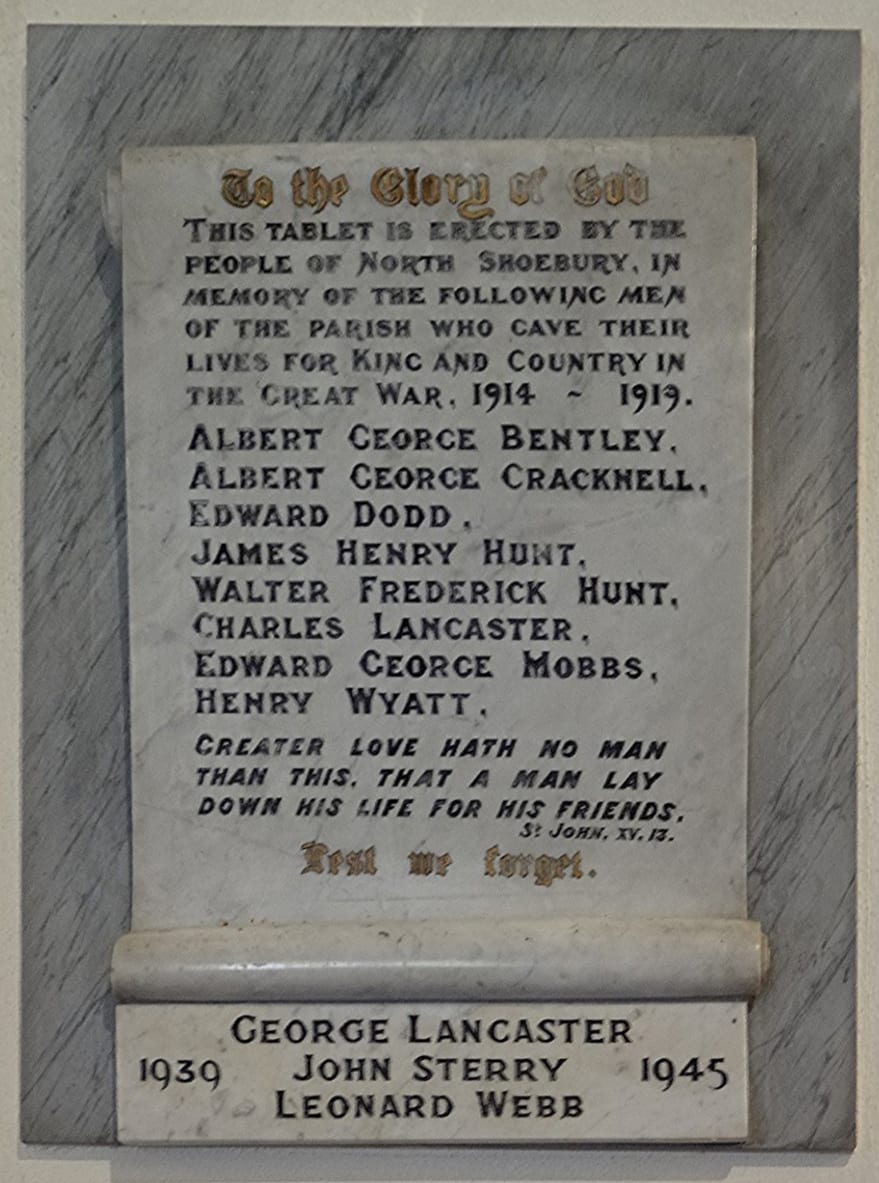 To the Glory of God
THIS TABLET IS ERECTED BY THE
PEOPLE OF NORTH SHOEBURY, IN
MEMORY OF THE FOLLOWING MEN
OF THE PARISH WHO GAVE THEIR
LIVES FOR KING AND COUNTRY IN
THE GREAT WAR, 1914 ~ 1919.
ALBERT GEORGE BENTLEY,
ALBERT GEORGE CRACKNELL,
EDWARD DODD,
JAMES HENRY HUNT,
WALTER FREDERICK HUNT,
CHARLES LANCASTER,
EDWARD GEORGE MOBBS,
HENRY WYATT,
GREATER LOVE HATH NO MAN
THAN THIS, THAT A MAN LAY
DOWN HIS LIFE FOR HIS FRIENDS.
St JOHN, XV. 13.
Lest we forget.
GEORGE LANCASTER
1939 JOHN STERRY 1945
LEONARD WEBB